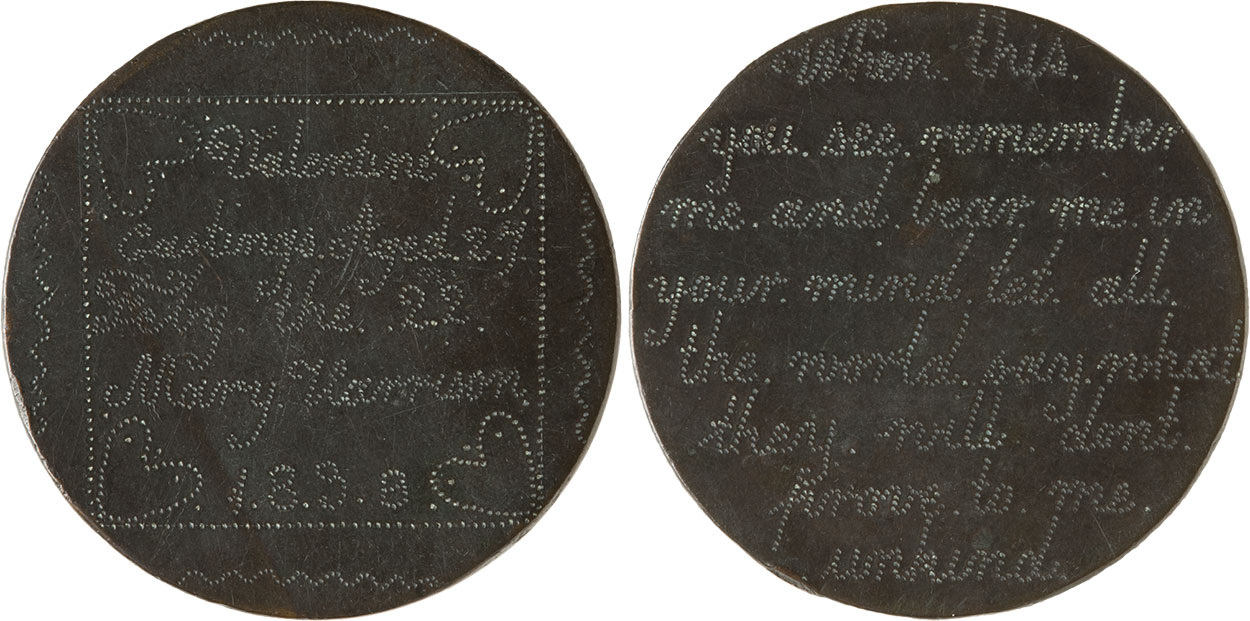 Valentine
Eastings Aged 27
July. the. 22
Mary Harrison
183.0
When. this.
you. see. remember
me. and. bear. me. in
your. mind. let. all.
the. world. say. what
they. will. dont
prove. to. me.
unkind.